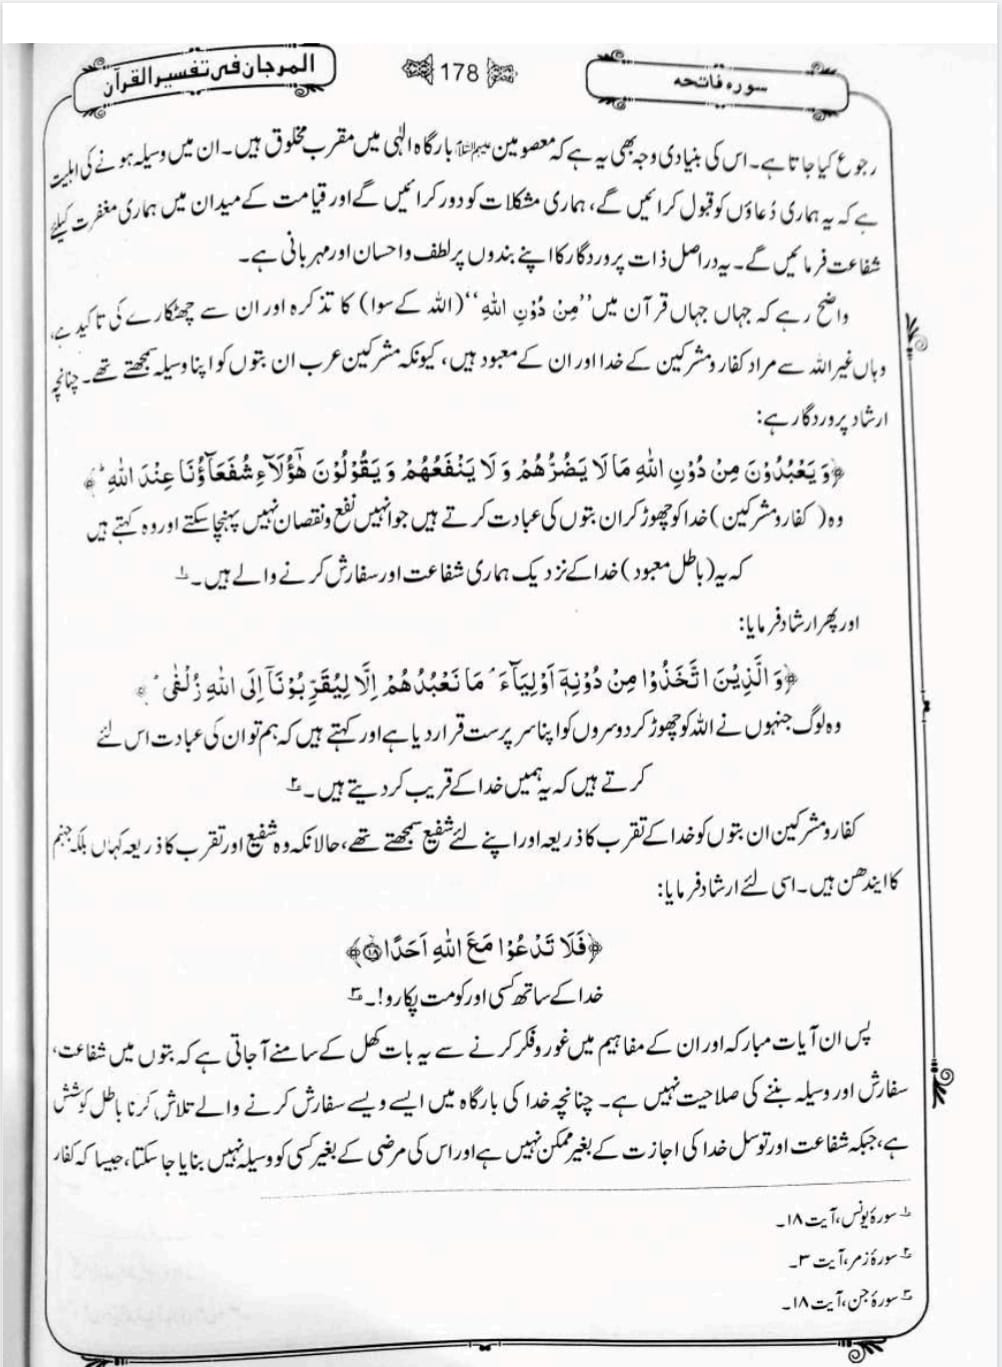 سورہ فاتحہ
178
المرجان فی تفسیر القرآن
رجوع کیا جاتا ہے۔ اس کی بنیادی وجہ بھی یہ ہے کہ معصومین علیہم السلام بارگاہ الٰہی میں مقرب مخلوق ہیں۔ ان میں وسیلہ ہونے کی اہلیت
ہے کہ یہ ہماری دُعاؤں کو قبول کرائیں گے، ہماری مشکلات کو دور کرائیں گے اور قیامت کے میدان میں ہماری مغفرت کیلئے
شفاعت فرمائیں گے۔ یہ دراصل ذات پروردگار کا اپنے بندوں پر لطف و احسان اور مہربانی ہے۔
واضح رہے کہ جہاں جہاں قرآن میں ’’مِنْ دُوْنِ اللهِ‘‘ (اللہ کے سوا) کا تذکرہ اور ان سے چھٹکارے کی تاکید ہے،
وہاں غیر اللہ سے مراد کفار و مشرکین کے خدا اور ان کے معبود ہیں، کیونکہ مشرکین عرب ان بتوں کو اپنا وسیلہ سمجھتے تھے۔ چنانچہ
ارشاد پروردگار ہے:
﴿وَ يَعْبُدُوْنَ مِنْ دُوْنِ اللهِ مَا لَا يَضُرُّهُمْ وَ لَا يَنْفَعُهُمْ وَ يَقُوْلُوْنَ هٰٓؤُلَآءِ شُفَعَآؤُنَا عِنْدَ اللهِ ؕ﴾
وہ (کفار و مشرکین) خدا کو چھوڑ کر ان بتوں کی عبادت کرتے ہیں جو انہیں نفع و نقصان نہیں پہنچا سکتے اور وہ کہتے ہیں
کہ یہ (باطل معبود) خدا کے نزدیک ہماری شفاعت اور سفارش کرنے والے ہیں۔ ۱
اور پھر ارشاد فرمایا:
﴿وَ الَّذِيْنَ اتَّخَذُوْا مِنْ دُوْنِهٖٓ اَوْلِيَآءَ ۘ مَا نَعْبُدُهُمْ اِلَّا لِيُقَرِّبُوْنَآ اِلَى اللهِ زُلْفٰى ؕ﴾
وہ لوگ جنہوں نے اللہ کو چھوڑ کر دوسروں کو اپنا سرپرست قرار دیا ہے اور کہتے ہیں کہ ہم تو ان کی عبادت اس لئے
کرتے ہیں کہ یہ ہمیں خدا کے قریب کر دیتے ہیں۔ ۲
کفار و مشرکین ان بتوں کو خدا کے تقرب کا ذریعہ اور اپنے لئے شفیع سمجھتے تھے، حالانکہ وہ شفیع اور تقرب کا ذریعہ کہاں بلکہ جہنم
کا ایندھن ہیں۔ اسی لئے ارشاد فرمایا:
﴿فَلَا تَدْعُوْا مَعَ اللهِ اَحَدًا ۝۱۸﴾
خدا کے ساتھ کسی اور کو مت پکارو!۔ ۳
پس ان آیات مبارکہ اور ان کے مفاہیم میں غور و فکر کرنے سے یہ بات کھل کے سامنے آجاتی ہے کہ بتوں میں شفاعت،
سفارش اور وسیلہ بننے کی صلاحیت نہیں ہے۔ چنانچہ خدا کی بارگاہ میں ایسے ویسے سفارش کرنے والے تلاش کرنا باطل کوشش
ہے، جبکہ شفاعت اور توسل خدا کی اجازت کے بغیر ممکن نہیں ہے اور اس کی مرضی کے بغیر کسی کو وسیلہ نہیں بنایا جاسکتا، جیسا کہ کفار
۱ سورۂ یونس، آیت ۱۸۔
۲ سورۂ زمر، آیت ۳۔
۳ سورۂ جن، آیت ۱۸۔